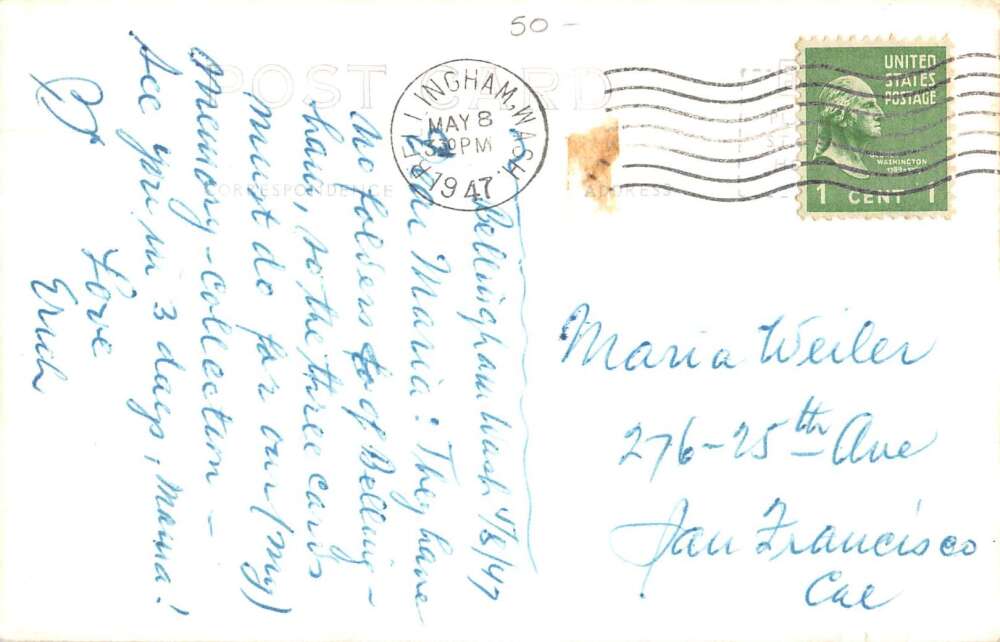 50 –
POST CARD
BELLINGHAM, WASH.
MAY 8
3 30 PM
1947
UNITED
STATES
POSTAGE
WASHINGTON
1 CENT 1
CORRESPONDENCE
ADDRESS
Bellingham Wash 4/8/47
Dear Maria: They have
no folders of Belling-
ham, so the three cards
must do for our (my)
memory-collection –
See you in 3 days, Mama!
Love
Erich
Maria Weiler
276-25th Ave
San Francisco
Cal